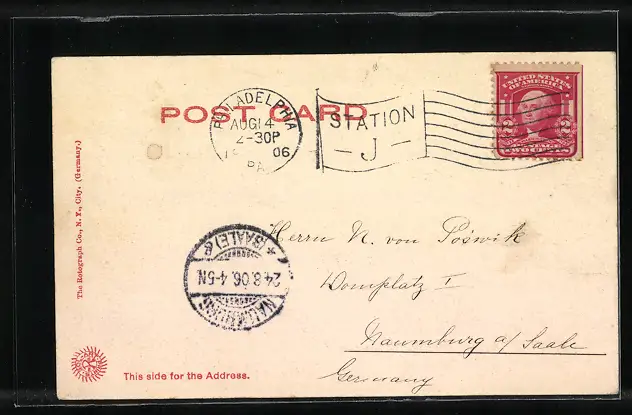 POST CARD
PHILADELPHIA
AUG 14
2-30P
06
PA.
STATION
- J -
UNITED STATES
OF AMERICA
2 2
POSTAGE
TWO CENTS
The Rotograph Co., N. Y., City. (Germany.)
Herrn N. von
Domplatz I
Naumburg a/ Saale
Germany
NAUMBURG
24.8.06.4-5N
* (SAALE)
This side for the Address.